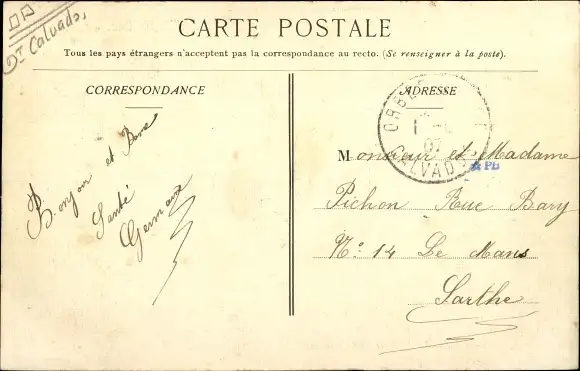 Dt Calvados
CARTE POSTALE
Tous les pays étrangers n'acceptent pas la correspondance au recto. (Se renseigner à la poste).
CORRESPONDANCE
Bonjour et Bone
Santé
Germaine
ADRESSE
CALVADOS
Monsieur et Madame
PB
Pichon Rue Bary
No 14 Le Mans
Sarthe